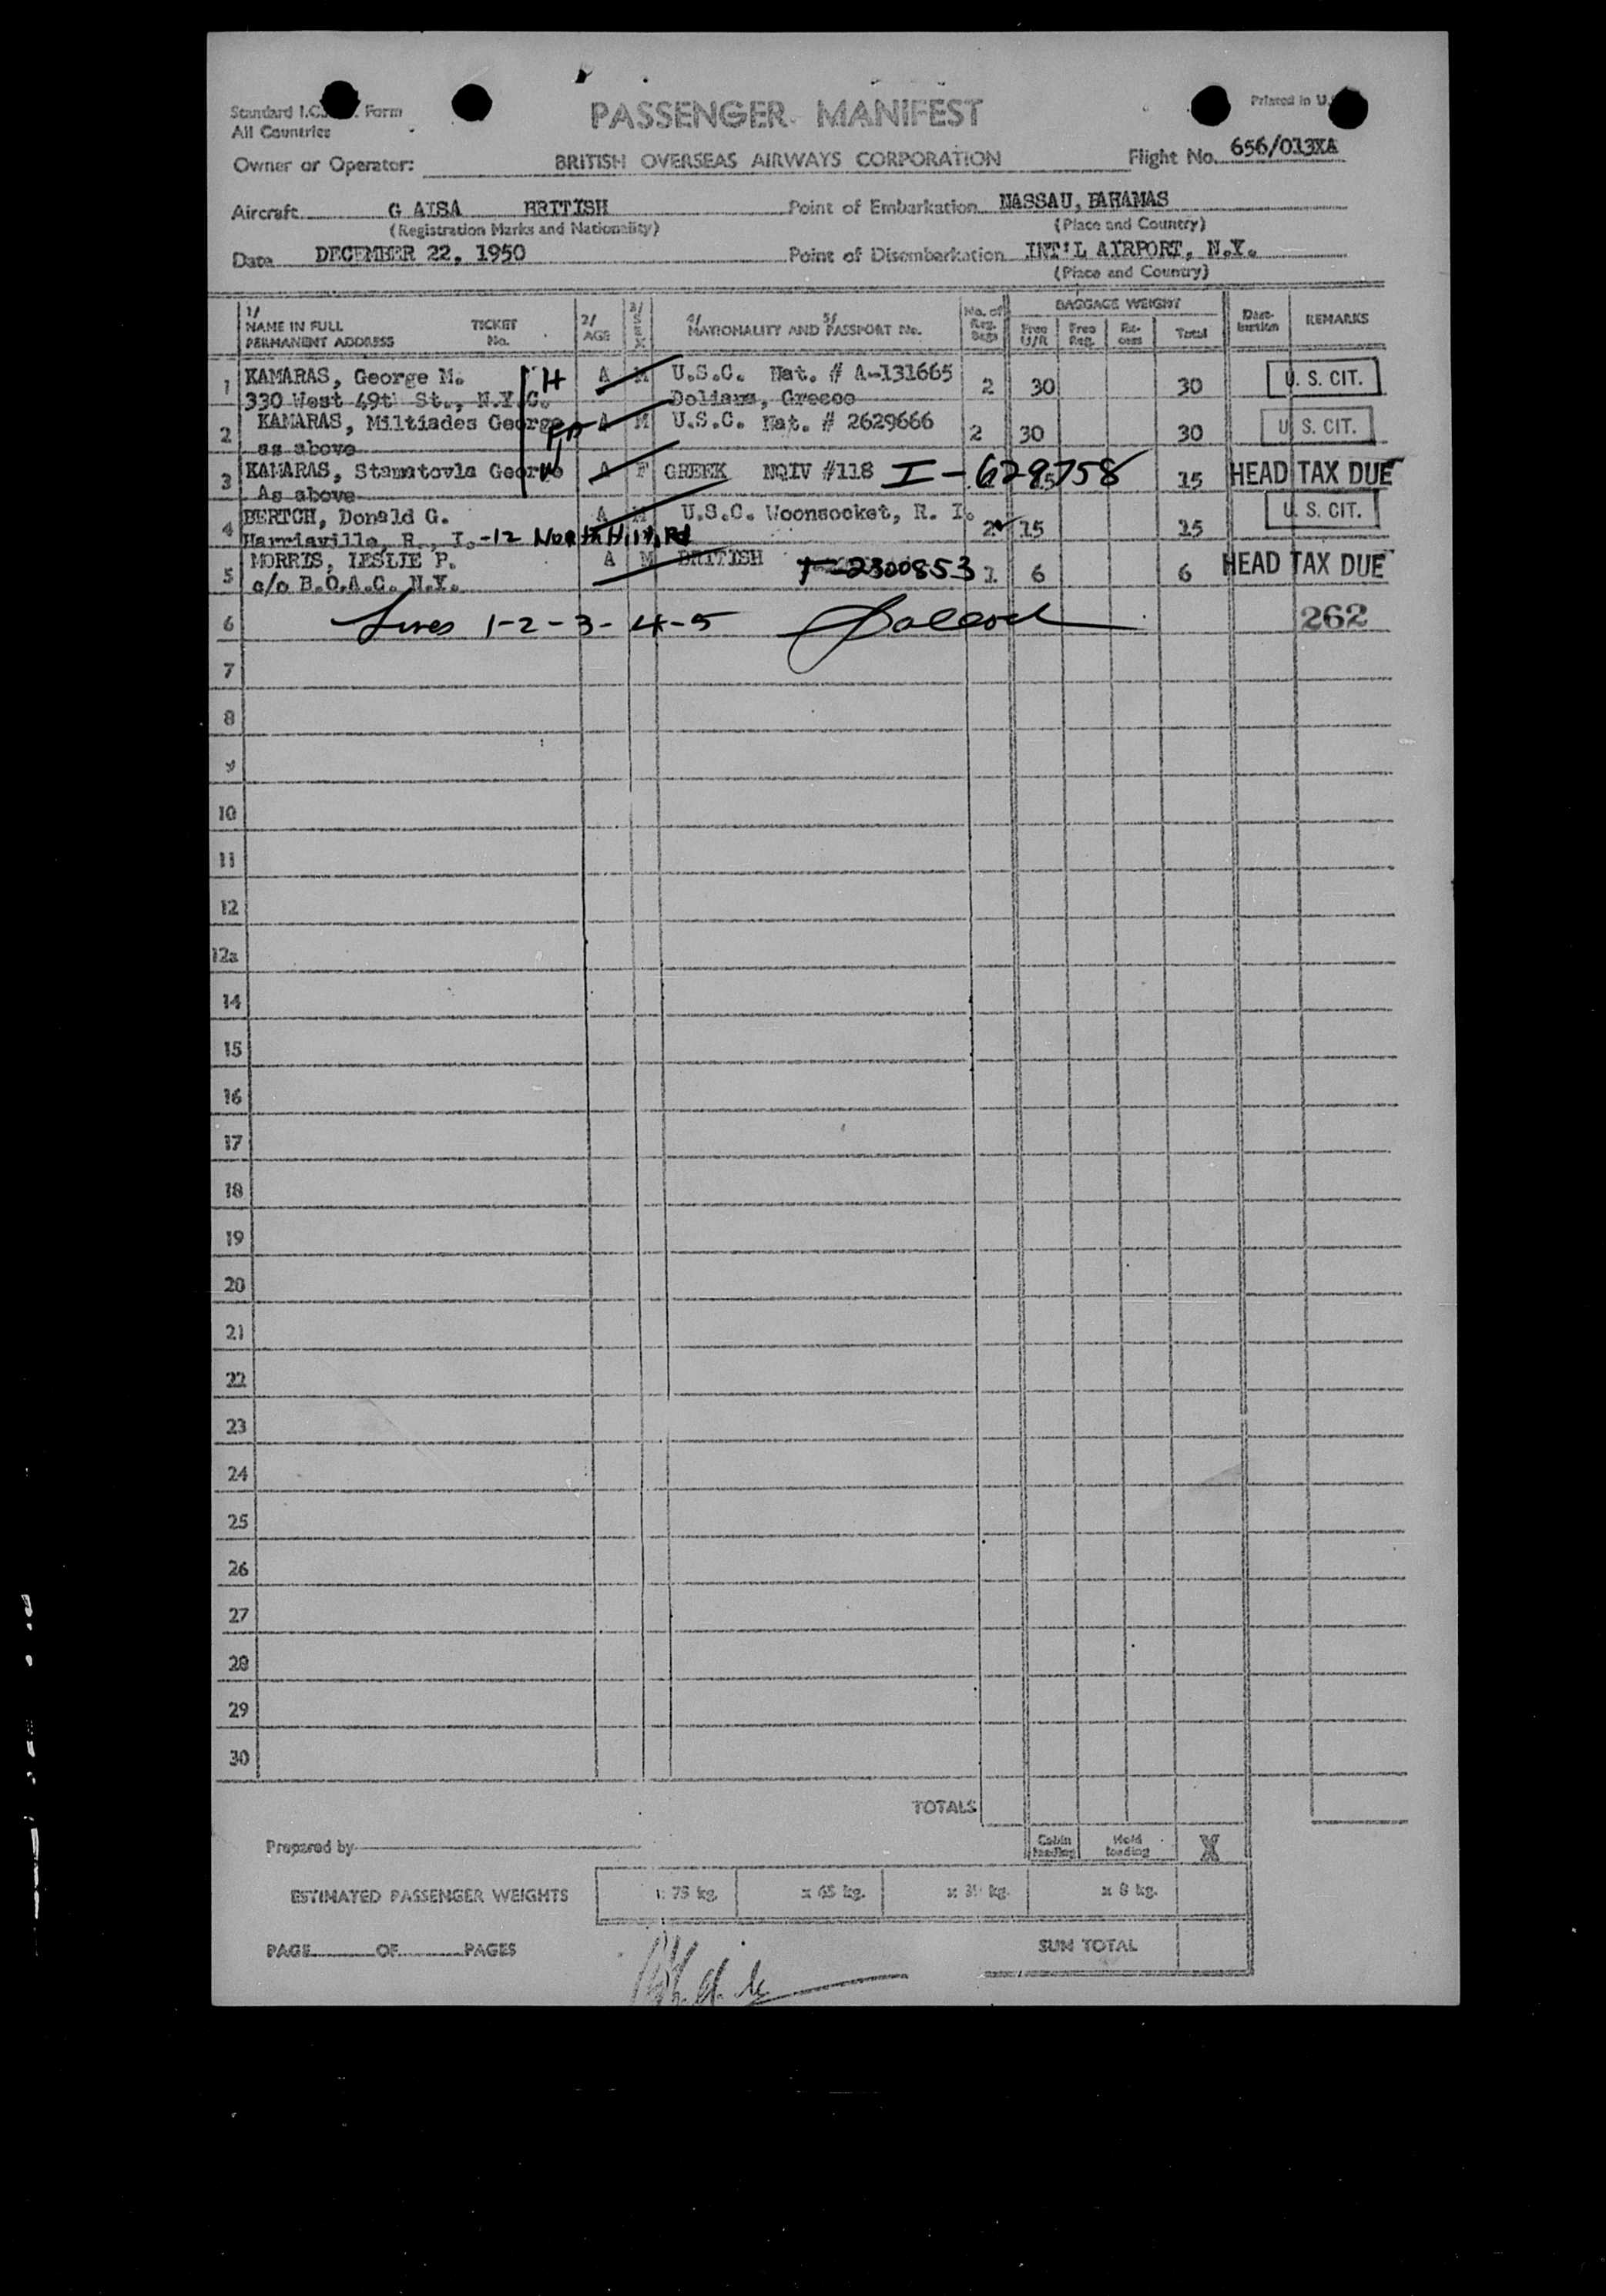 Standard I.C. Form
All Countries
PASSENGER MANIFEST
Printed in U.
Owner or Operator: BRITISH OVERSEAS AIRWAYS CORPORATION Flight No. 656/013XA
Aircraft G AISA BRITISH Point of Embarkation NASSAU, BAHAMAS
(Registration Marks and Nationality) (Place and Country)
Date DECEMBER 22, 1950 Point of Disembarkation INT'L AIRPORT, N.Y.
(Place and Country)
1/ NAME IN FULL TICKET 2/ AGE 3/ SEX 4/ 5/ NATIONALITY AND PASSPORT No. No. of Reg. Bags BAGGAGE WEIGHT Dest- ination REMARKS
PERMANENT ADDRESS No. Free U/R Free Reg. Ex- cess Total
1 KAMARAS, George M. H A M U.S.C. Nat. # A-131665 2 30 30 U. S. CIT.
330 West 49th St., N.Y.C. Doliana, Greece
2 KAMARAS, Miltiades George A M U.S.C. Nat. # 2629666 2 30 30 U. S. CIT.
as above
3 KAMARAS, Stamatovla George W A F GREEK NQIV #118 I-629758 15 15 HEAD TAX DUE
As above
4 BERTCH, Donald G. A M U.S.C. Woonsocket, R. I. 2 15 15 U. S. CIT.
Harrisville, R. I. -12 North Hill Rd
5 MORRIS, LESLIE P. A M BRITISH T-2300853 1 6 6 HEAD TAX DUE
c/o B.O.A.C. N.Y.
6 Lines 1-2-3-4-5 262
7
8
9
10
11
12
12a
14
15
16
17
18
19
20
21
22
23
24
25
26
27
28
29
30
TOTALS
Prepared by Cabin loading Hold loading X
ESTIMATED PASSENGER WEIGHTS x 75 kg. x 65 kg. x 39 kg. x 8 kg.
PAGE OF PAGES SUM TOTAL